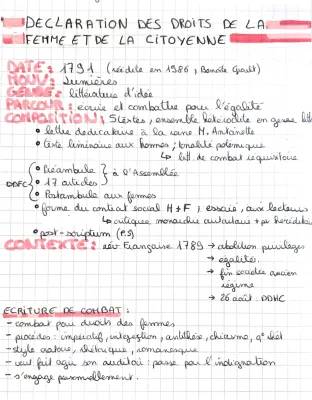 DECLARATION DES DROITS DE LA
FEMME ET DE LA CITOYENNE
DATE : 1791 (réédité en 1986, Benoîte Groult)
MOUV : Lumières
GENRE : littérature d'idée
PARCOUR : écrire et combattre pour l'égalité
COMPOSITION : 5 textes, ensemble hétéroclite en genre litt
• lettre dédicatoire à la reine M. Antoinette
• texte liminaire aux hommes ; tonalité polémique
↳ litt. de combat réquisitoire
DDFC { • Préambule
• 17 articles } à l'Assemblée
• Postambule aux femmes
• forme du contrat social H + F ; essaie, aux lecteurs
↳ critique monarchie autoritaire + pr héréditaire
• post-scriptum (P.S)
CONTEXTE : rév Française 1789 → abolition privilèges
→ égalité.
→ fin société ancien
régime
→ 26 août : DDHC
ECRITURE DE COMBAT :
- combat pour droits des femmes
- procédés : impératif, interjection, antithèse, chiasme, q° rhét
- style oratoire, rhétorique, romanesque
- veut fait agir son auditoire : passe par l'indignation
- s'engage personnellement.